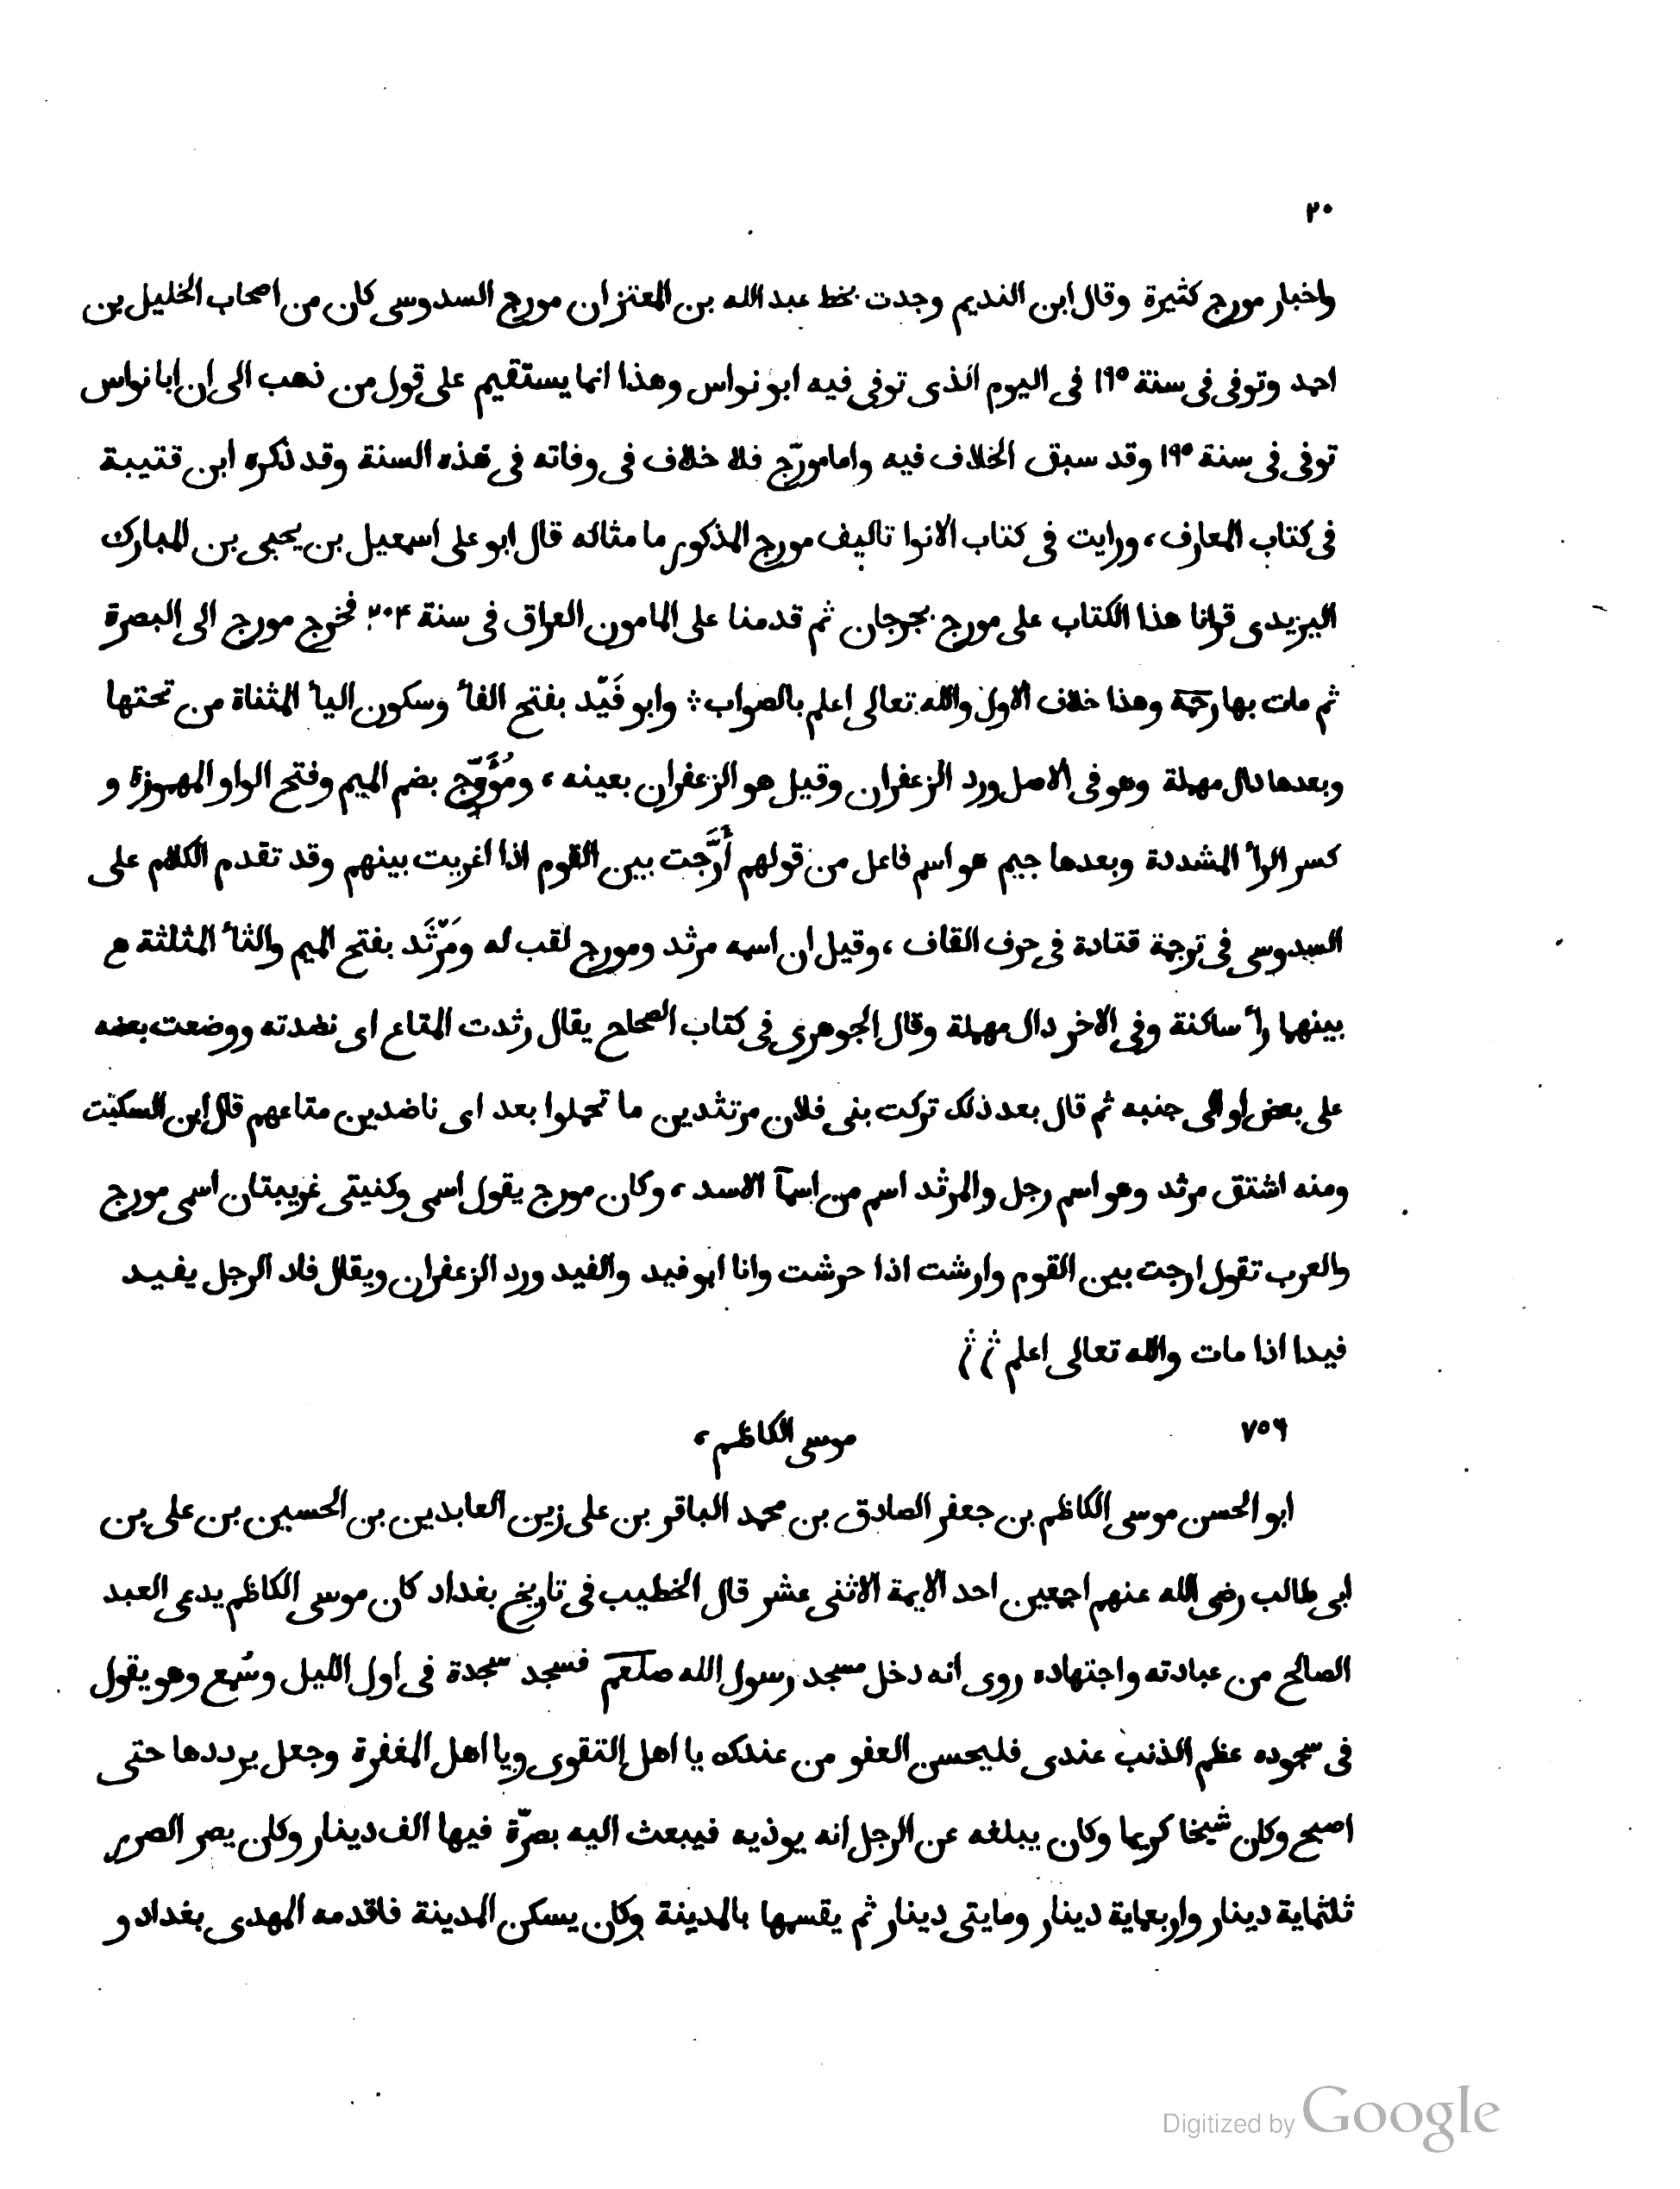 ٢٠
واخبار مورج كثيرة وقال ابن النديم وجدت بخط عبد الله بن المعتز ان مورج السدوسى كان من اصحاب الخليل بن
احمد وتوفى فى سنة ١٩٥ فى اليوم الذى توفى فيه ابو نواس وهذا انما يستقيم على قول من ذهب الى ان ابا نواس
توفى فى سنة ١٩٥ وقد سبق الخلاف فيه واما مورّج فلا خلاف فى وفاته فى هذه السنة وقد ذكره ابن قتيبة
فى كتاب المعارف، ورايت فى كتاب الانوا تاليف مورج المذكور ما مثاله قال ابو على اسمعيل بن يحيى بن المبارك
اليزيدى قرانا هذا الكتاب على مورج بجرجان ثم قدمنا على المامون العراق فى سنة ٢٠٤ فخرج مورج الى البصرة
ثم مات بها رحمه وهذا خلاف الاول والله تعالى اعلم بالصواب ؞ وابو فَيّد بفتح الفأ وسكون اليأ المثناة من تحتها
وبعدها دال مهملة وهو فى الاصل ورد الزعفران وقيل هو الزعفران بعينه، ومُؤَرِّج بضم الميم وفتح الواو المهموزة و
كسر الرأ المشددة وبعدها جيم هو اسم فاعل من قولهم أَرَّجت بين القوم اذا اغريت بينهم وقد تقدم الكلام على
السدوسى فى ترجمة قتادة فى حرف القاف، وقيل ان اسمه مرثد ومورج لقب له ومَرْثَد بفتح الميم والثأ المثلثة م
بينهما رأ ساكنة وفى الاخر دال مهملة وقال الجوهرى فى كتاب الصحاح يقال رثدت المتاع اى نضدته ووضعت بعضه
على بعض او الى جنبه ثم قال بعد ذلك تركت بنى فلان مرتثدين ما تحملوا بعد اى ناضدين متاعهم قال ابن السكيت
ومنه اشتق مرثد وهو اسم رجل والمرثد اسم من اسمآ الاسد، وكان مورج يقول اسمى وكنيتى غريبتان اسمى مورج
والعرب تقول ارجت بين القوم وارشت اذا حرشت وانا ابو فيد والفيد ورد الزعفران ويقال فاد الرجل يفيد
فيدا اذا مات والله تعالى اعلم
٧٥٦ موسى الكاظم،
ابو الحسن موسى الكاظم بن جعفر الصادق بن محمد الباقر بن على زين العابدين بن الحسين بن على بن
ابى طالب رضى الله عنهم اجمعين احد الايمة الاثنى عشر قال الخطيب فى تاريخ بغداد كان موسى الكاظم يدعى العبد
الصالح من عبادته واجتهاده روى انه دخل مسجد رسول الله صلعم فسجد سجدة فى اول الليل وسُمع وهو يقول
فى سجوده عظم الذنب عندى فليحسن العفو من عندك يا اهل التقوى ويا اهل المغفرة وجعل يرددها حتى
اصبح وكان شيخا كريما وكان يبلغه عن الرجل انه يوذيه فيبعث اليه بصرّة فيها الف دينار وكان يصر الصرر
ثلثماية دينار واربعماية دينار ومايتى دينار ثم يقسمها بالمدينة وكان يسكن المدينة فاقدمه المهدى بغداد و
Digitized by Google